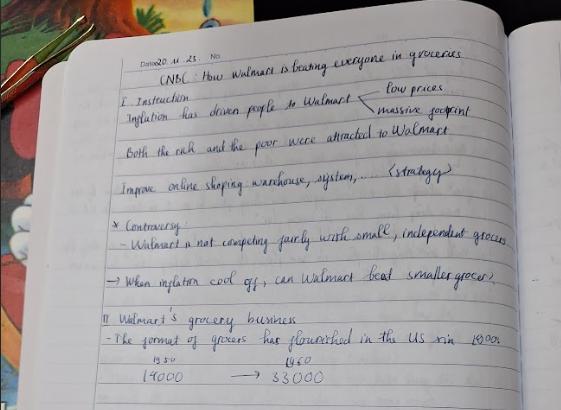 Date 20. 11. 23. No
CNBC: How Walmart is beating everyone in groceries
I. Instruction
low prices
Inflation has driven people to Walmart <
massive footprint
Both the rich and the poor were attracted to Walmart
Improve online shoping: warehouse, system, ... (strategy)
* Controversy:
- Walmart is not competing fairly with small, independent grocers
→ When inflation cool off, can Walmart beat smaller grocer?
II Walmart's grocery business
- The format of grocers has flourished in the US sin 1900s
1950 1960
14000 → 33000